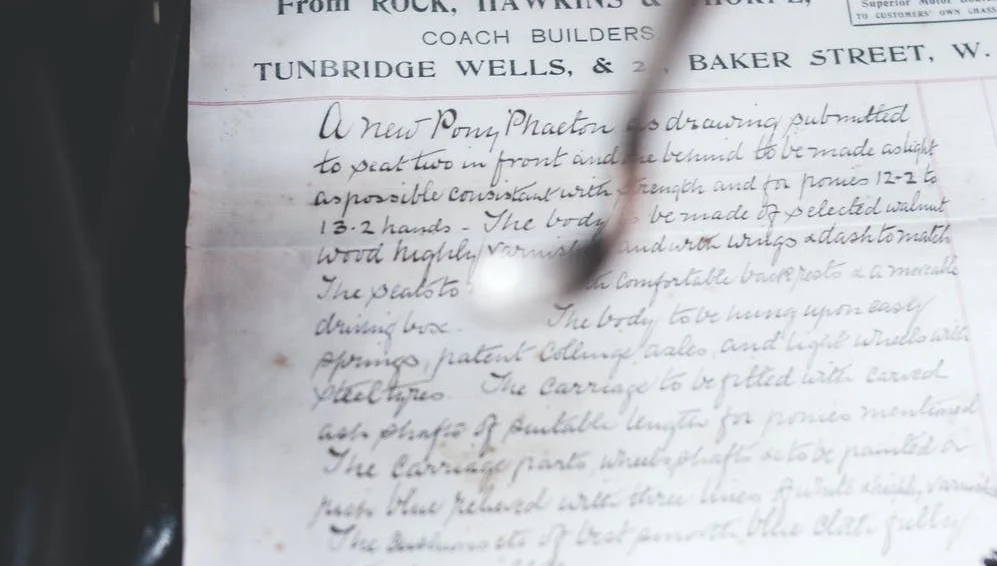 From ROCK, HAWKINS &
Superior Motor
TO CUSTOMERS' OWN CHASS
COACH BUILDERS
TUNBRIDGE WELLS, & 2 , BAKER STREET, W.
A new Pony Phaeton as drawing submitted
to seat two in front and behind to be made as light
as possible consistant with and for ponies 12-2 to
13.2 hands - The body be made of selected walnut
wood highly and with wings & dash to match
The seats to comfortable back rests & a moveable
driving box. The body to be hung upon easy
springs, patent Collinge axles, and light wheels with
steel tyres. The Carriage to be fitted with carved
ash shafts of suitable length for ponies mentioned
The Carriage parts, wheels shafts &c to be painted a
blue relieved with three lines of
The cushions etc of best smooth blue cloth fully